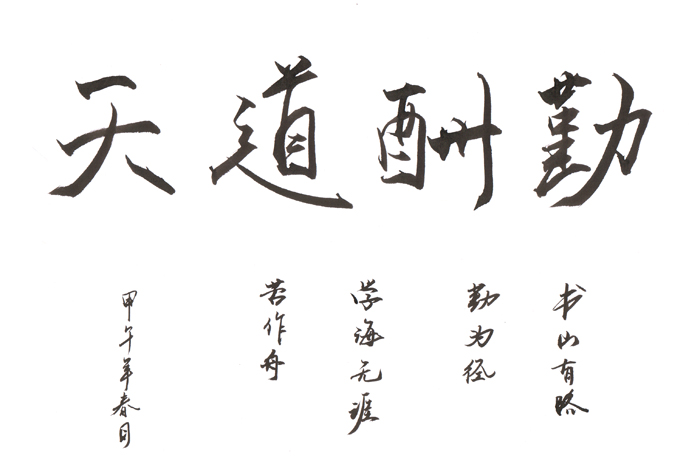 天道酬勤
书山有路
勤为径
学海无涯
苦作舟
甲午年春日